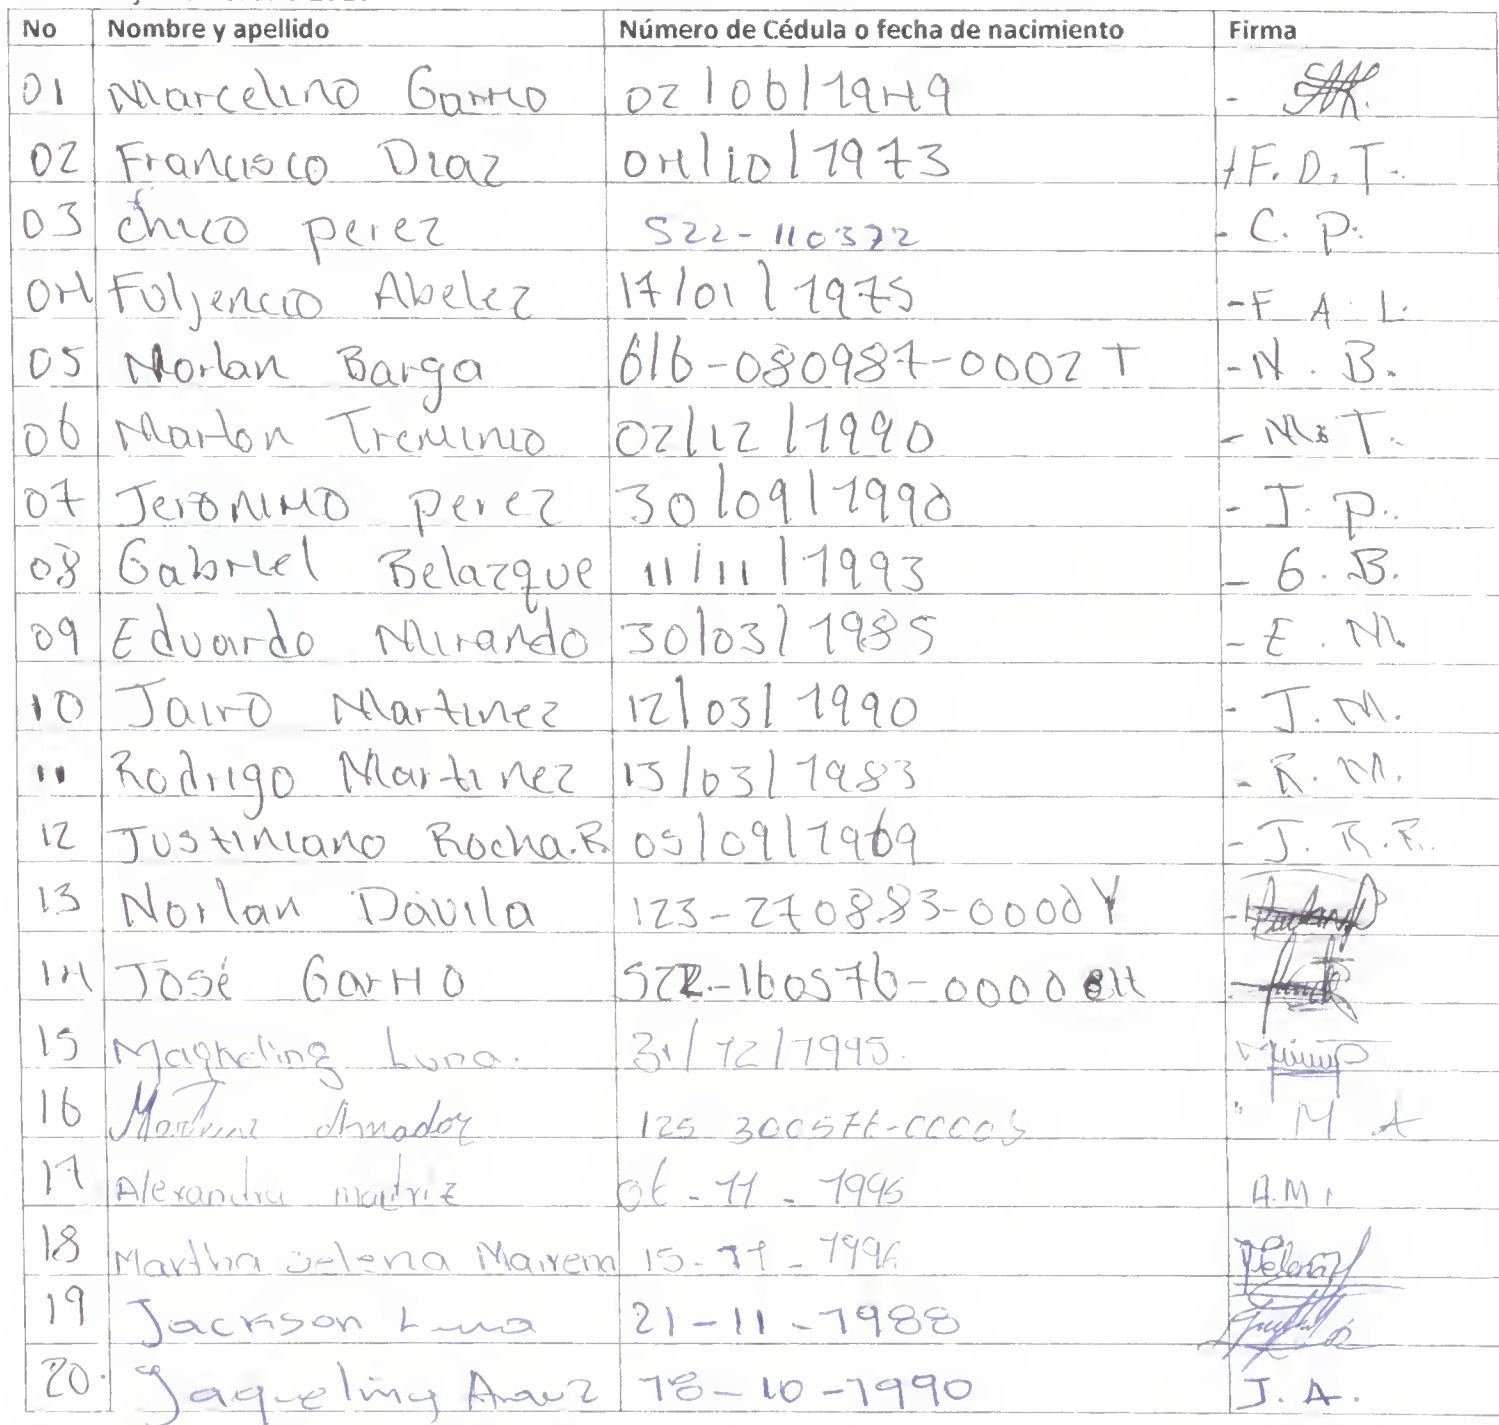 No Nombre y apellido Número de Cédula o fecha de nacimiento Firma
01 Marcelino Garmo 02/06/1949 -
02 Francisco Diaz 04/10/1973 F. D. T.
03 chico perez 522-110372 - C. P.
04 Fuljencio Abelez 17/01/1975 - F A L.
05 Norlan Barga 616-080987-0002 T - N. B.
06 Marlon Treminio 02/12/1990 - M. T.
07 Jeronimo perez 30/09/1990 - J. P.
08 Gabriel Belazque 11/11/1993 - G. B.
09 Eduardo Mirando 30/03/1985 - E. M.
10 Jairo Martinez 12/03/1990 - J. M.
11 Rodrigo Martinez 13/03/1983 - R. M.
12 Justiniano Rocha.R 05/09/1969 - J. R. R.
13 Norlan Davila 123-270883-0000Y -
14 José 522-160576-0000 -
15 Magheling Luna. 31/12/1995.
16 Amador 125 M A
17 Alexandra madriz 06-11-1995 A.M.
18 Martha Selena Mairena 15-11-1996
19 Jackson Luna 21-11-1988
20. Jaqueling Arauz 18-10-1990 J. A.